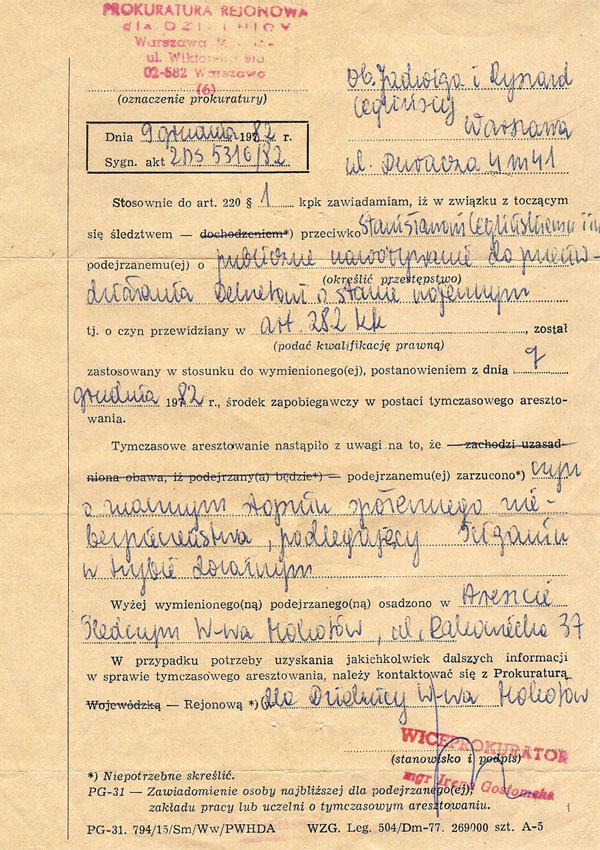 PROKURATURA REJONOWA
dla DZIELNICY
Warszawa
ul. 
02-582 Warszawa
(6)
(oznaczenie prokuratury)
Ob. Jadwiga i Ryszard
Ceglińscy
Warszawa
ul. Duracza 4 m 41
Dnia 9 grudnia 1982 r.
Sygn. akt 2 Ds 5316/82
Stosownie do art. 220 § 1 kpk zawiadamiam, iż w związku z toczącym
się śledztwem — dochodzeniem*) przeciwko Stanisławowi Ceglińskiemu i in
podejrzanemu(ej) o publiczne nawoływanie do przeciw-
(określić przestępstwo)
działania Dekretowi o stanie wojennym
tj. o czyn przewidziany w art. 282 kk, został
(podać kwalifikację prawną)
zastosowany w stosunku do wymienionego(ej), postanowieniem z dnia 9
grudnia 1982 r., środek zapobiegawczy w postaci tymczasowego areszto-
wania.
Tymczasowe aresztowanie nastąpiło z uwagi na to, że — zachodzi uzasad-
niona obawa, iż podejrzany(a) będzie*) — podejrzanemu(ej) zarzucono*) czyn
o znacznym stopniu społecznego nie-
bezpieczeństwa, podlegający ściganiu
w trybie doraźnym
Wyżej wymienionego(ną) podejrzanego(ną) osadzono w Areszcie
Śledczym W-wa Mokotów, ul. Rakowiecka 37
W przypadku potrzeby uzyskania jakichkolwiek dalszych informacji
w sprawie tymczasowego aresztowania, należy kontaktować się z Prokuraturą
Wojewódzką — Rejonową *) w dla Dzielnicy W-wa Mokotów
WICEPROKURATOR
(stanowisko i podpis)
mgr Irena Gostomska
*) Niepotrzebne skreślić.
PG-31 — Zawiadomienie osoby najbliższej dla podejrzanego(ej),
zakładu pracy lub uczelni o tymczasowym aresztowaniu.
PG-31. 794/15/Sm/Ww/PWHDA WZG. Leg. 504/Dm-77. 269000 szt. A-5